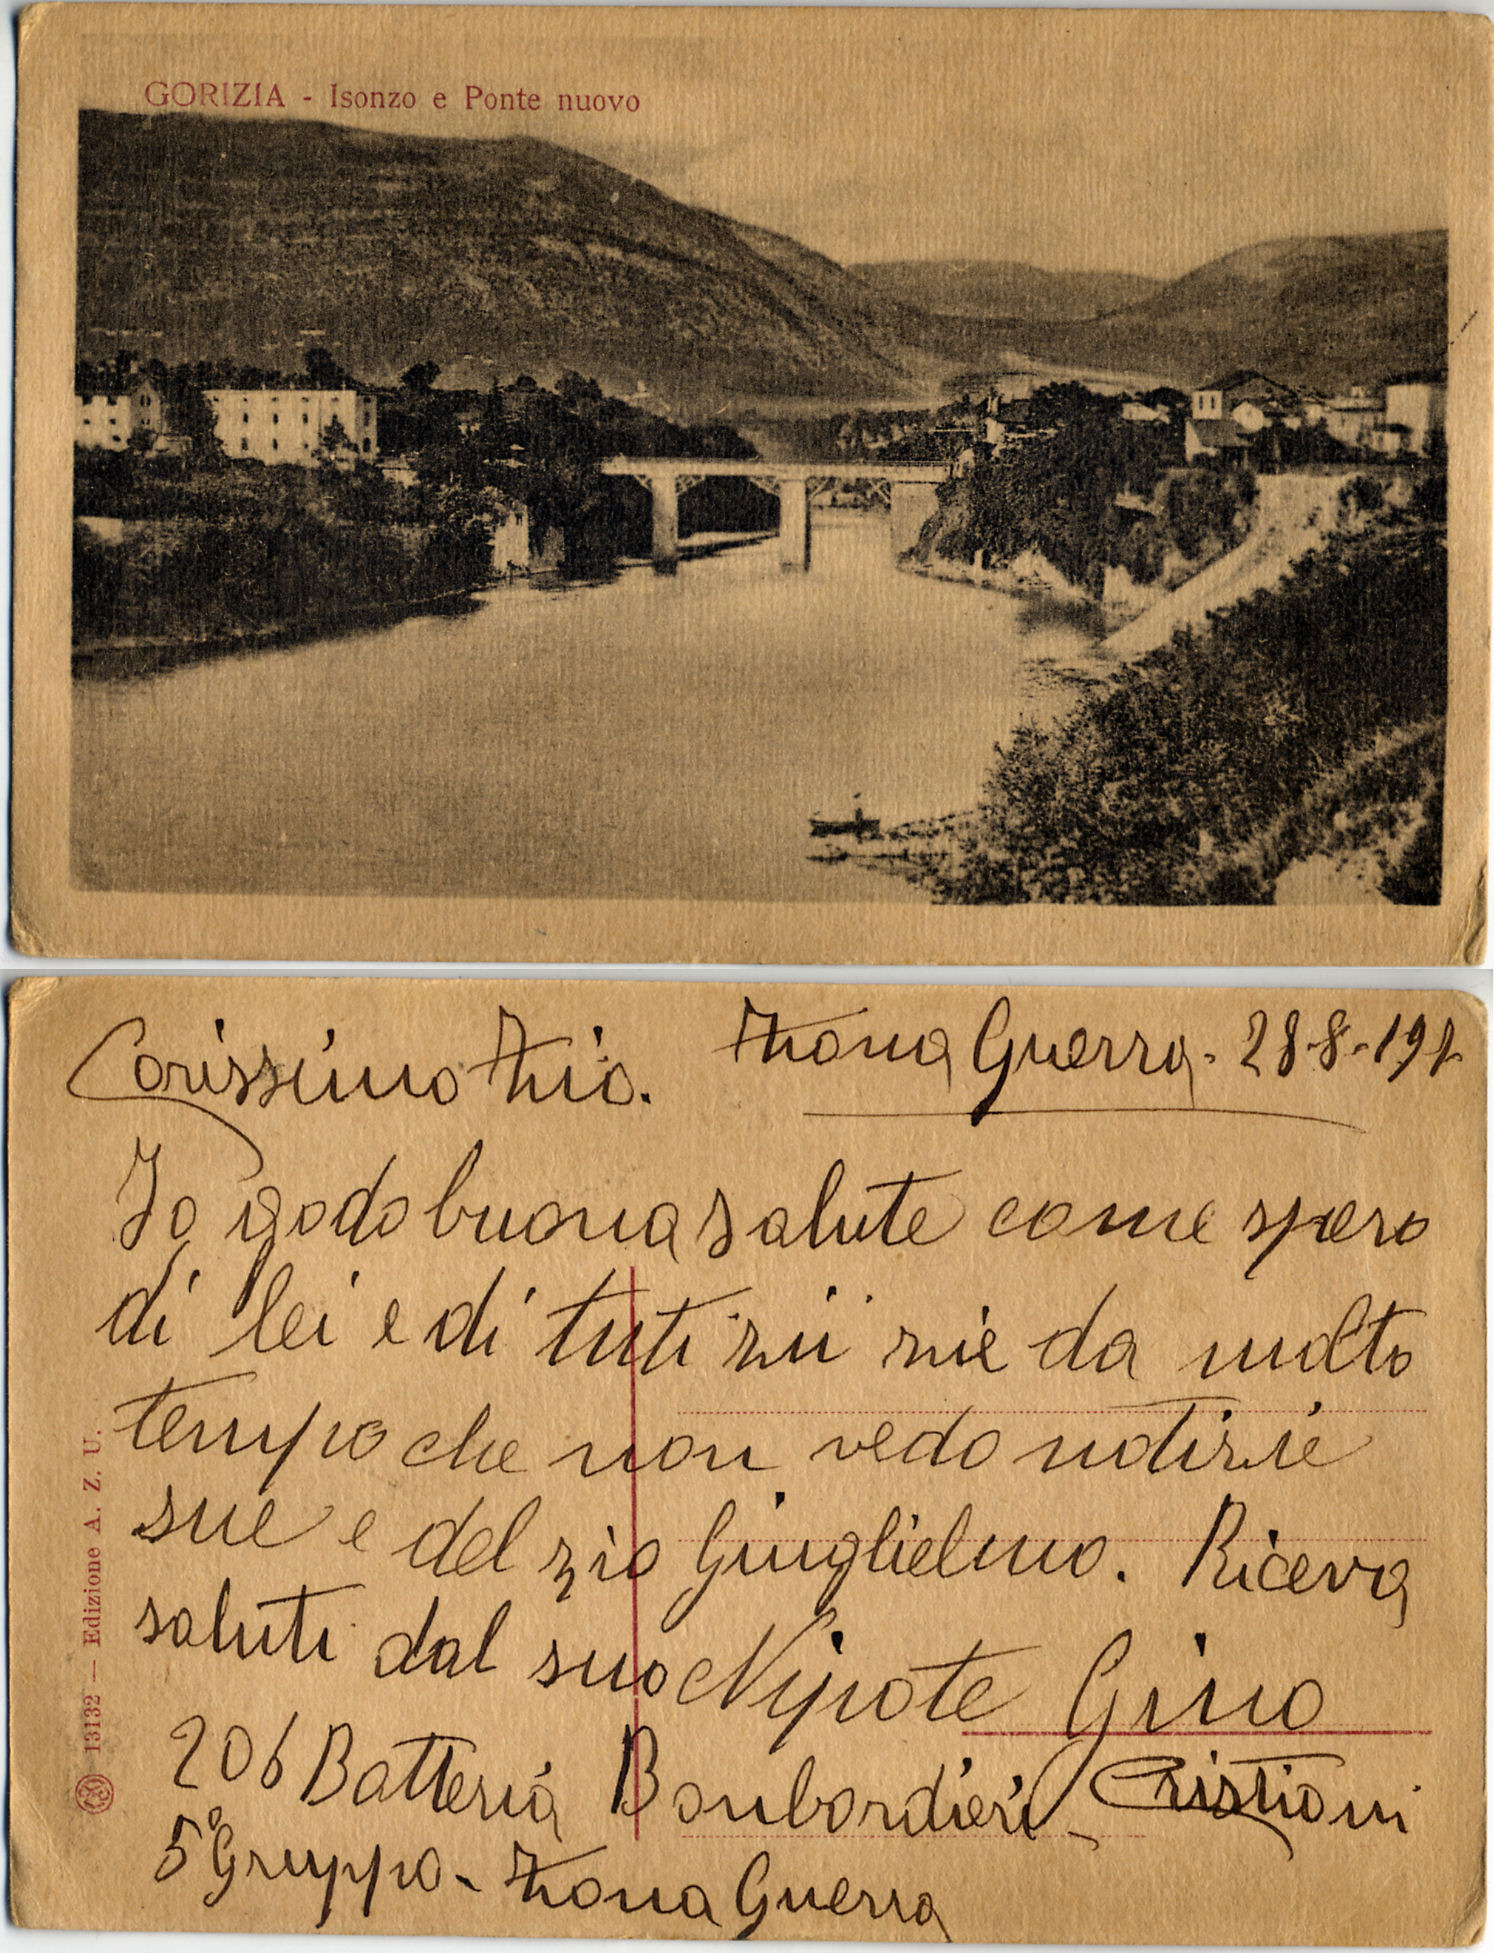 GORIZIA - Isonzo e Ponte nuovo
Carissimo Zio. Zona Guerra. 28-8-191
Io godo buona salute come spero
di lei e di tuti zii zie da molto
tempo che non vedo notizie
sue e del zio Giuglielmo. Riceva
saluti dal suo Nipote Gino
206 Batteria Bonbardieri Cristiani
5º Gruppo - Zona Guerra
13132 — Edizione A. Z. U.